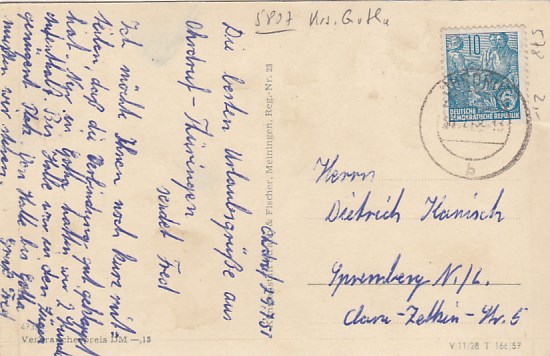 5807 Krs. Gotha
578
10
DEUTSCHE
DEMOKRATISCHE REPUBLIK
OHRDRUF
b
Ohrdruf 29/7 57
Die besten Urlaubsgrüße aus
Ohrdruf – Thüringen
sendet Fred
Ich möchte Ihnen noch kurz mit-
teilen daß die Verbindung gut geklappt
hat. Nur in Gotha hatten wir 2 Stunden
Aufenthalt. Bis Halle war in den Zügen
genügend Platz. Von Halle bis Gotha
mußten wir stehen.
Gruß Fred
& Fischer, Meiningen, Reg.-Nr. 23
Verbraucherpreis DM –,15
Herrn
Dietrich Kanisch
Spremberg N./L.
Clara-Zetkin-Str. 5
V 11/28 T 166/57